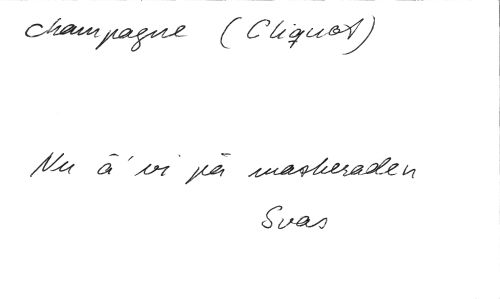 champagne (Cliquot)
Nu ä' vi på maskeraden
Svas